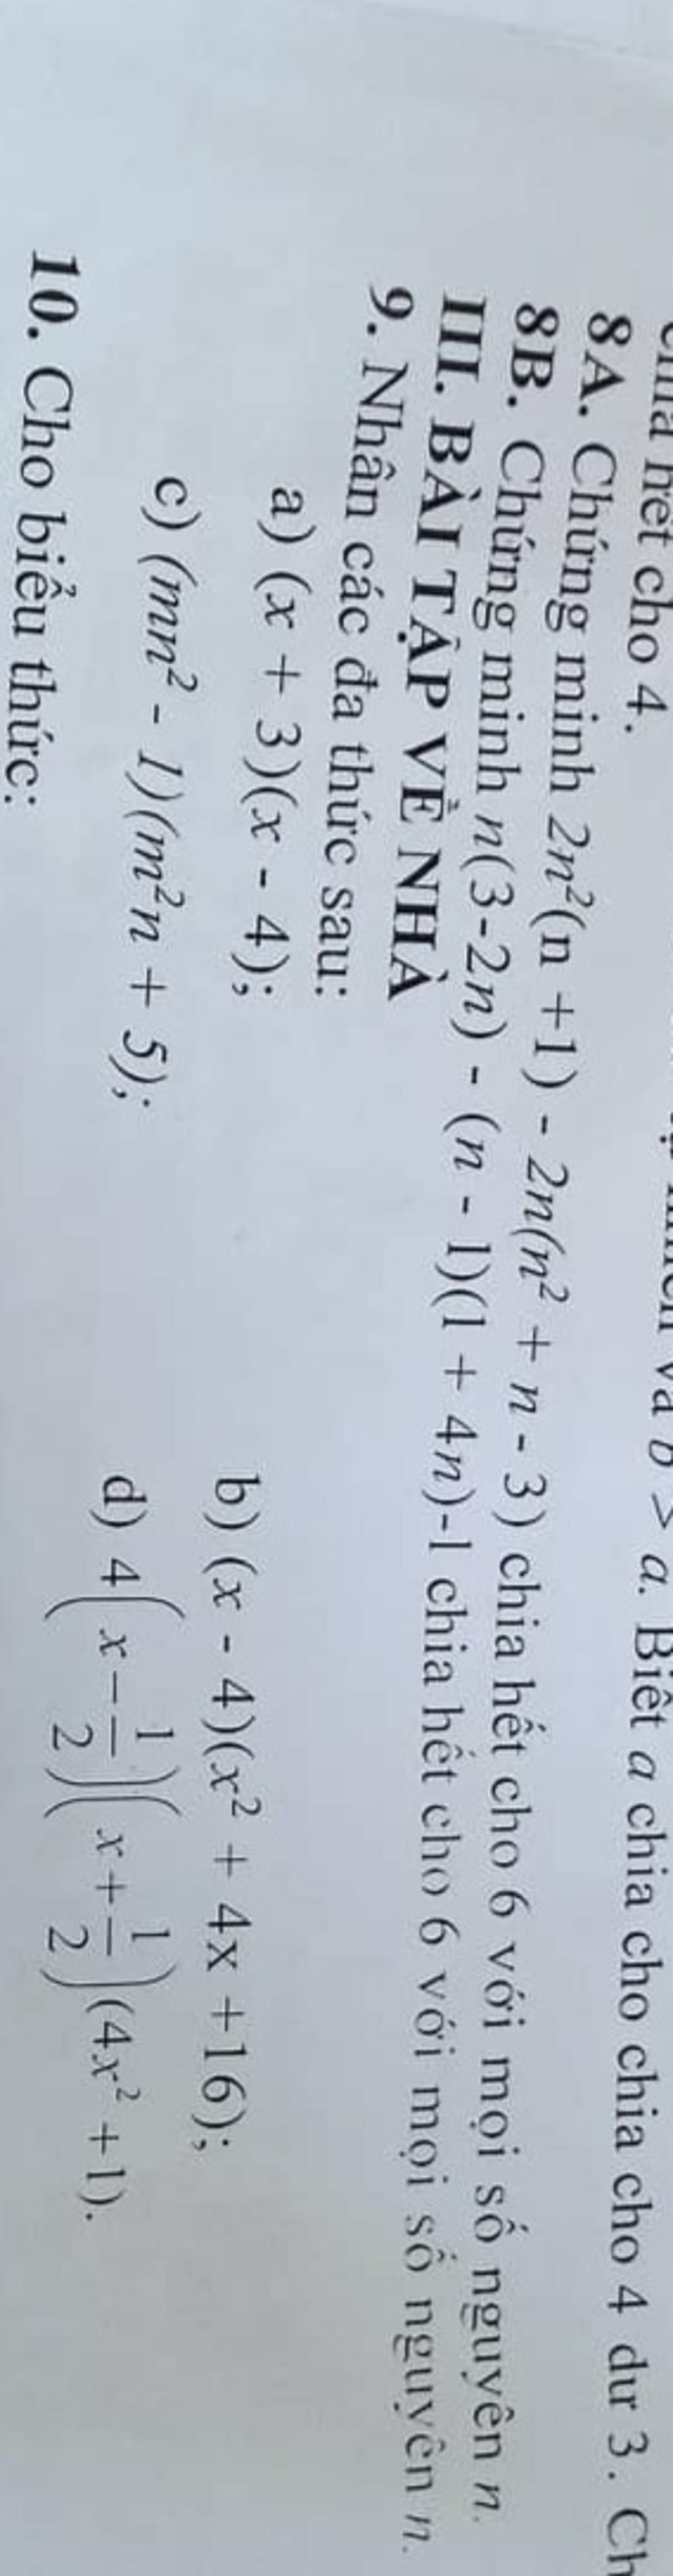 hết cho 4.
và b > a. Biết a chia cho chia cho 4 dư 3. Ch
8A. Chứng minh 2n²(n +1) - 2n(n² + n - 3) chia hết cho 6 với mọi số nguyên n.
8B. Chứng minh n(3-2n) - (n - 1)(1 + 4n)-1 chia hết cho 6 với mọi số nguyên n.
III. BÀI TẬP VỀ NHÀ
9. Nhân các đa thức sau:
a) (x + 3)(x - 4);
b) (x - 4)(x² + 4x +16);
c) (mn² - 1)(m²n + 5);
d) 4(x - 1/2)(x + 1/2)(4x² +1).
10. Cho biểu thức: